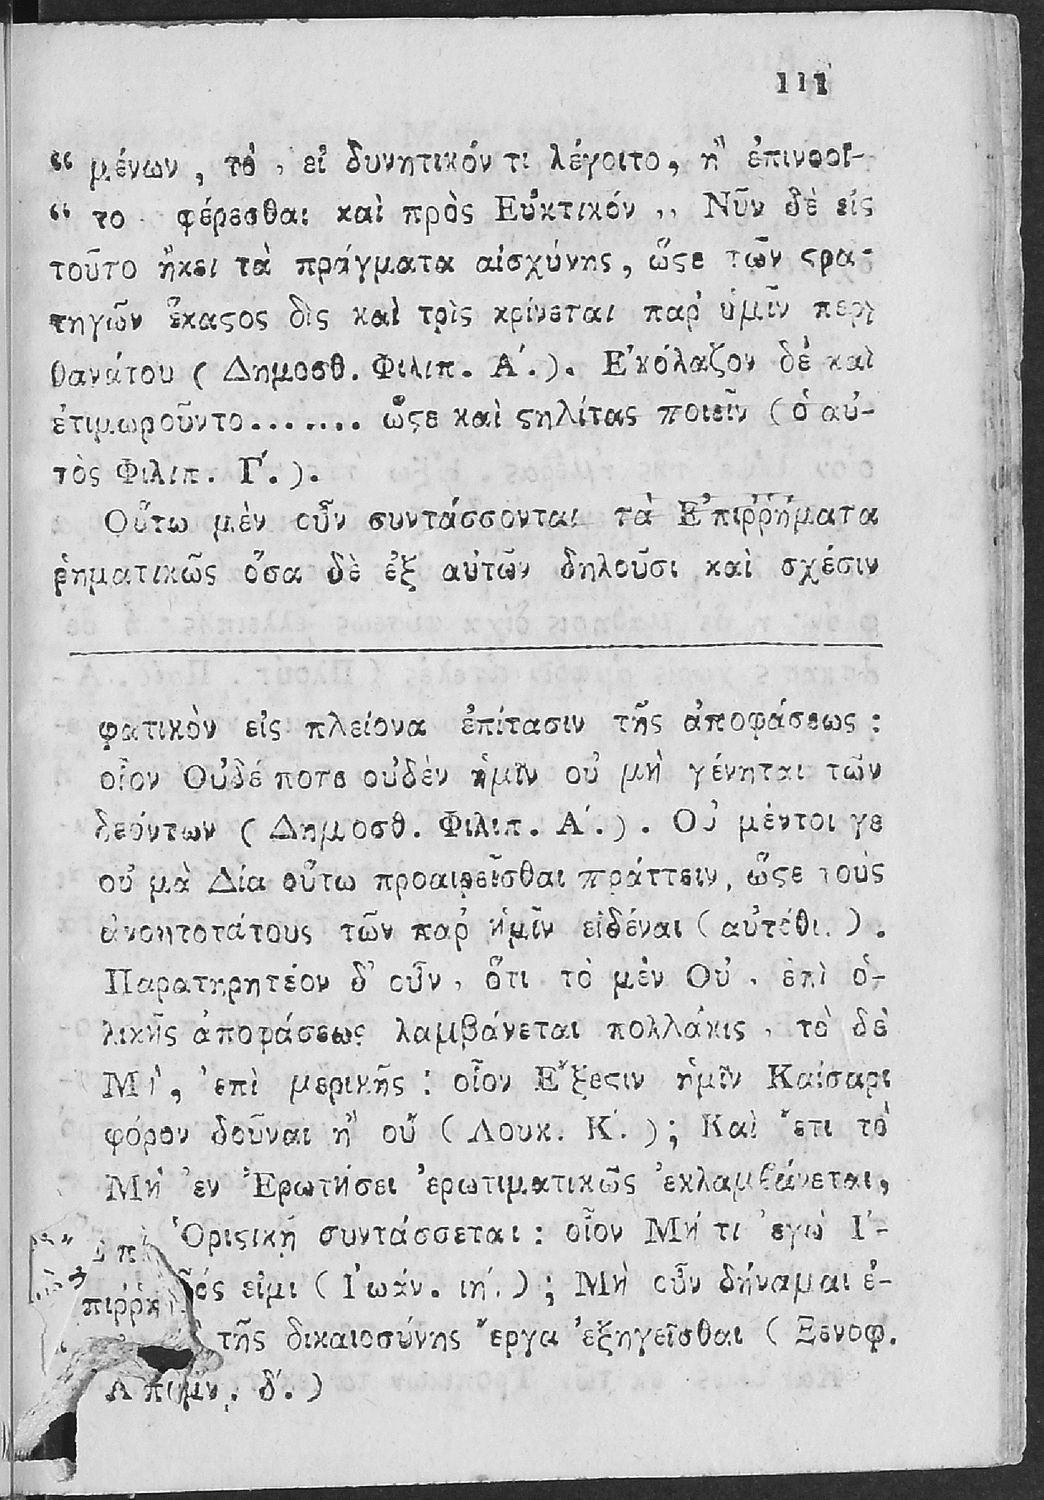 111
“ μένων, τὸ, εἰ δυνητικόν τι λέγοιτο, ἢ ἐπινοοῖ-
“ το φέρεσθαι καὶ πρὸς Εὐκτικόν ,, Νῦν δὲ εἰς
τοῦτο ἥκει τὰ πράγματα αἰσχύνης, ὥςε τῶν ςρα-
τηγῶν ἕκαςος δὶς καὶ τρὶς κρίνεται παρ' ὑμῖν περὶ
θανάτου ( Δημοσθ. Φιλιπ. Α΄.). Ε'κόλαζον δὲ καὶ
ἐτιμωροῦντο....... ὥςε καὶ ςηλίτας ποιεῖν (ὁ αὐ-
τὸς Φιλιπ. Γ΄.).
Οὕτω μὲν οὖν συντάσσονται τὰ Ε'πιῤῥήματα
ῥηματικῶς ὅσα δὲ ἐξ αὐτῶν δηλοῦσι καὶ σχέσιν
φατικὸν εἰς πλείονα ἐπίτασιν τῆς ἀποφάσεως :
οἷον Οὐδέ ποτε οὐδὲν ἡμῖν οὐ μὴ γένηται τῶν
δεόντων ( Δημοσθ. Φιλιπ. Α΄.). Οὐ μέντοι γε
οὐ μὰ Δία οὕτω προαιρεῖσθαι πράττειν, ὥςε τοὺς
ἀνοητοτάτους τῶν παρ' ἡμῖν εἰδέναι ( αὐτόθι.).
Παρατηρητέον δ' οὖν, ὅτι τὸ μὲν Οὐ, ἐπὶ ὁ-
λικῆς ἀποφάσεως λαμβάνεται πολλάκις, τὸ δὲ
Μὴ, 'επὶ μερικῆς : οἷον Ε'́ξεςιν ἡμῖν Καίσαρι
φόρον δοῦναι ἢ οὔ ( Λουκ. Κ΄.); Καὶ ἔτι τὸ
Μὴ 'εν 'Ερωτήσει 'ερωτιματικῶς 'εκλαμβάνεται,
Ὁριςικῇ συντάσσεται : οἷον Μή τι 'εγὼ Ι'-
εἰμι ( Ι'ωάν. ιή.); Μὴ οὖν δήναμαι ἐ-
τῆς δικαιοσύνης ἔργα 'εξηγεῖσθαι ( Ξενοφ.
Α'πομν. δ΄.)